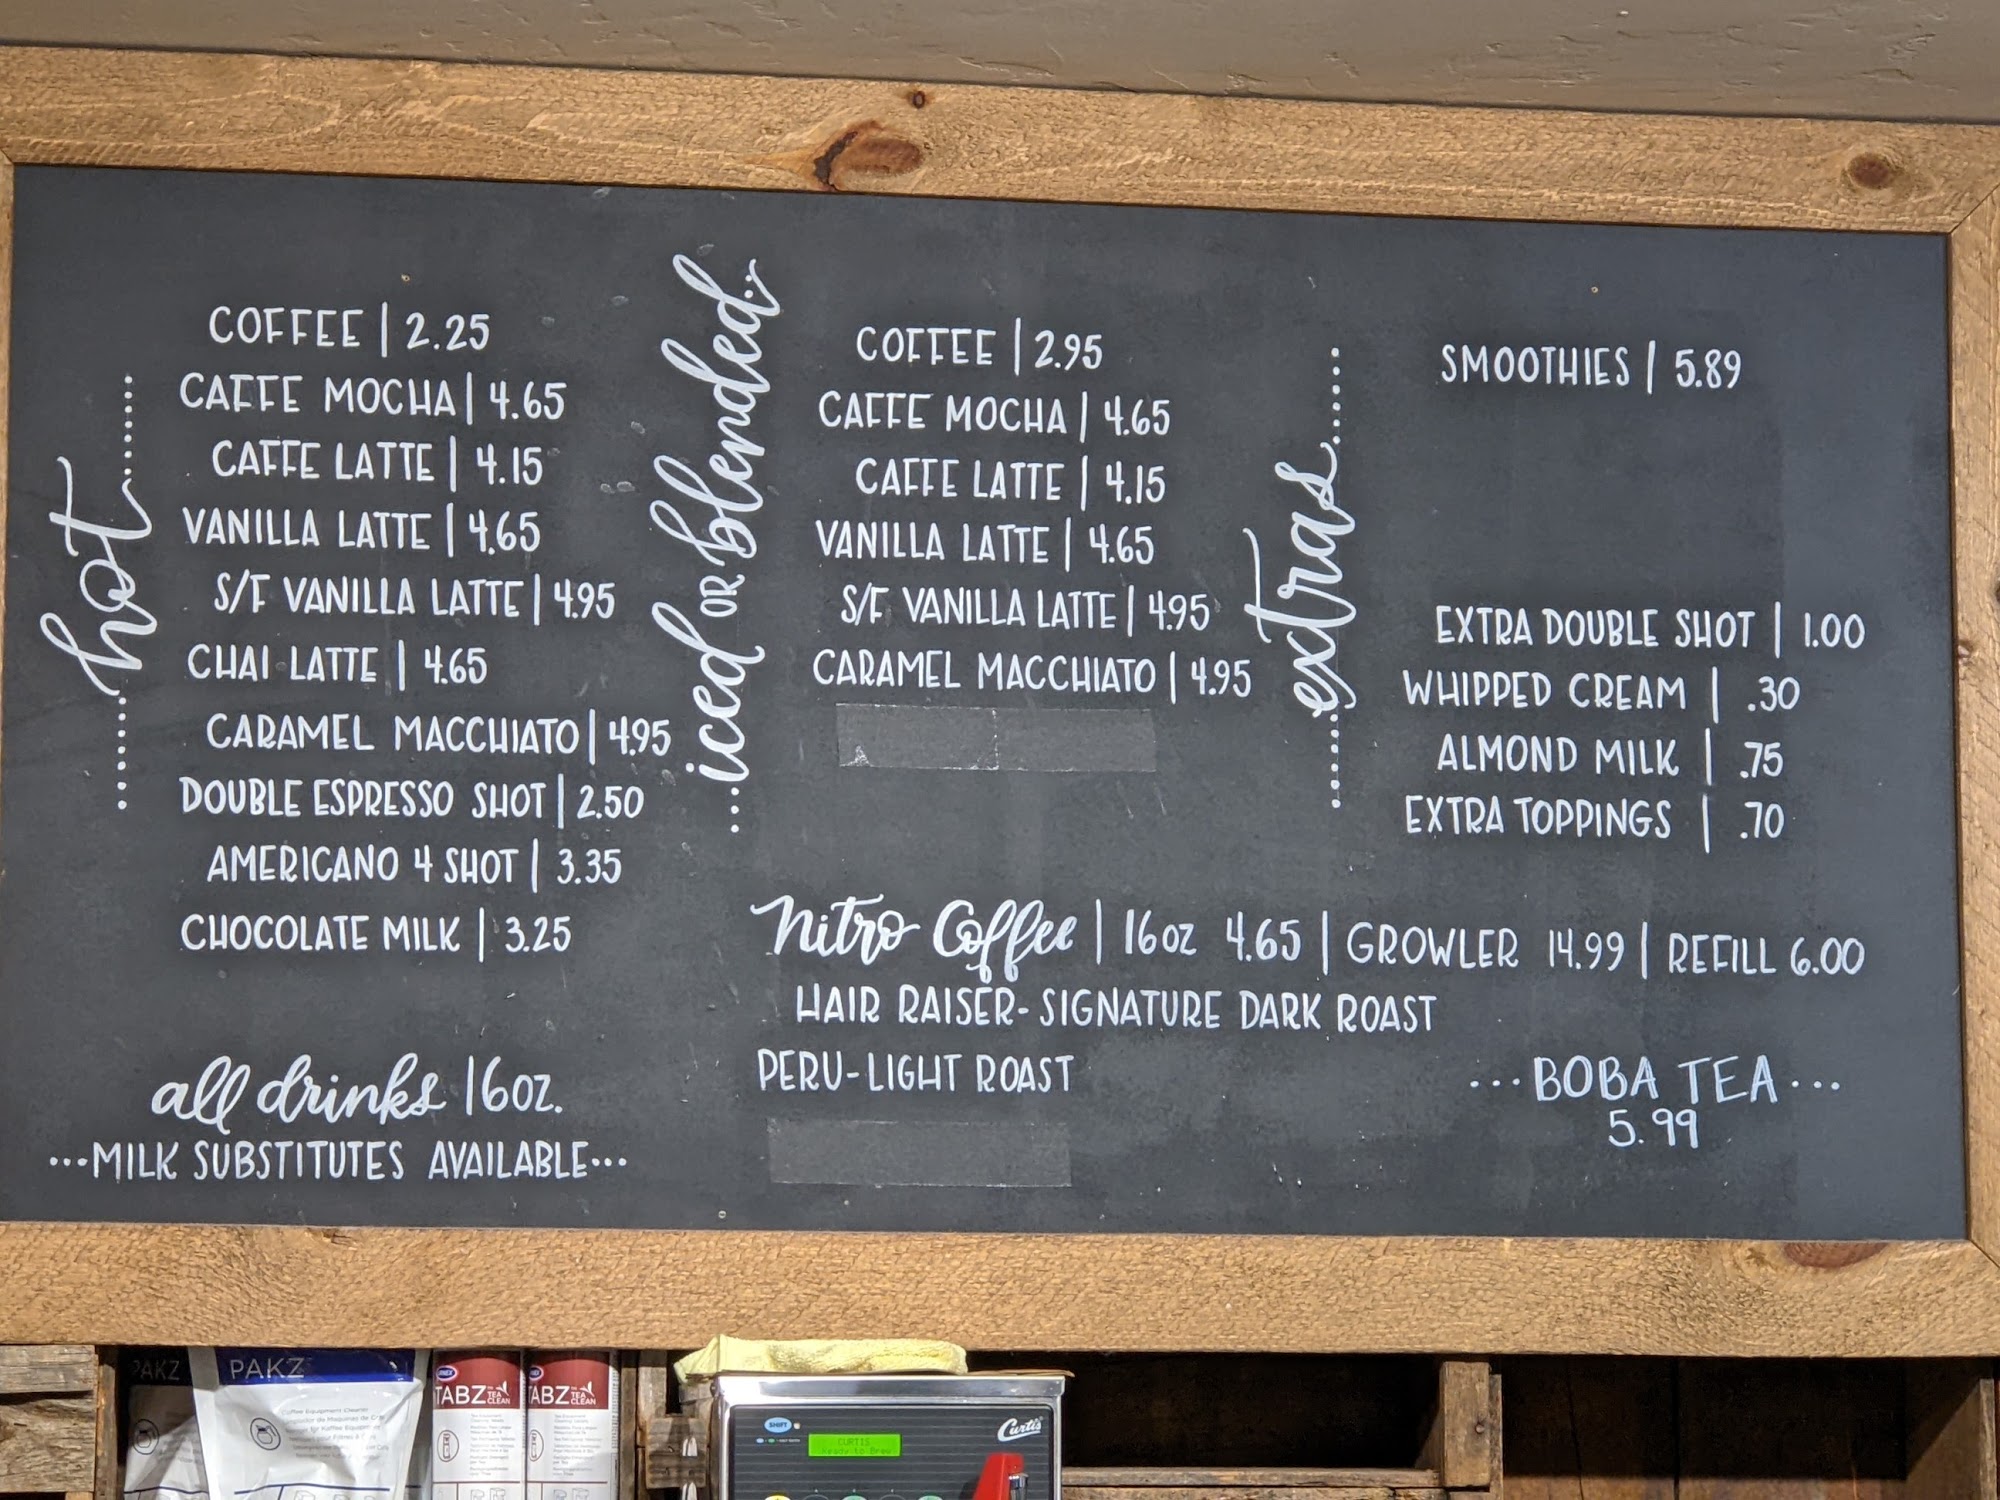 hot
COFFEE | 2.25
CAFFE MOCHA | 4.65
CAFFE LATTE | 4.15
VANILLA LATTE | 4.65
S/F VANILLA LATTE | 4.95
CHAI LATTE | 4.65
CARAMEL MACCHIATO | 4.95
DOUBLE ESPRESSO SHOT | 2.50
AMERICANO 4 SHOT | 3.35
CHOCOLATE MILK | 3.25
all drinks 16oz.
...MILK SUBSTITUTES AVAILABLE...
...iced OR blended...
COFFEE | 2.95
CAFFE MOCHA | 4.65
CAFFE LATTE | 4.15
VANILLA LATTE | 4.65
S/F VANILLA LATTE | 4.95
CARAMEL MACCHIATO | 4.95
extras
SMOOTHIES | 5.89
EXTRA DOUBLE SHOT | 1.00
WHIPPED CREAM | .30
ALMOND MILK | .75
EXTRA TOPPINGS | .70
Nitro Coffee | 16oz 4.65 | GROWLER 14.99 | REFILL 6.00
HAIR RAISER- SIGNATURE DARK ROAST
PERU-LIGHT ROAST
...BOBA TEA...
5.99
PAKZ
PAKZ
Coffee Equipment Cleaner
TABZ TEA CLEAN
TABZ TEA CLEAN
SHIFT
Curtis
CURTIS
Ready to Brew